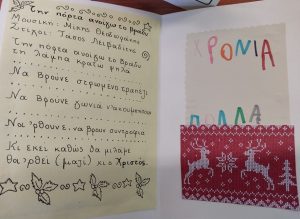 Την πόρτα ανοίγω το βράδυ
Μουσική: Μίκης Θεοδωράκης
Στίχοι: Τάσος Λειβαδίτης
Την πόρτα ανοίγω το βράδυ
τη λάμπα κρατώ ψηλά
Να βρούνε στρωμένο τραπέζι
Να βρουνε γωνιά ν'ακουμπήσουν
Να 'ρθουνε, να βρουν συντροφιά
Κι εκεί καθώς θα μιλάμε
θα 'ρθει (μαζί) κι ο Χριστός.
ΧΡΟΝΙΑ
ΠΟΛΛΑ